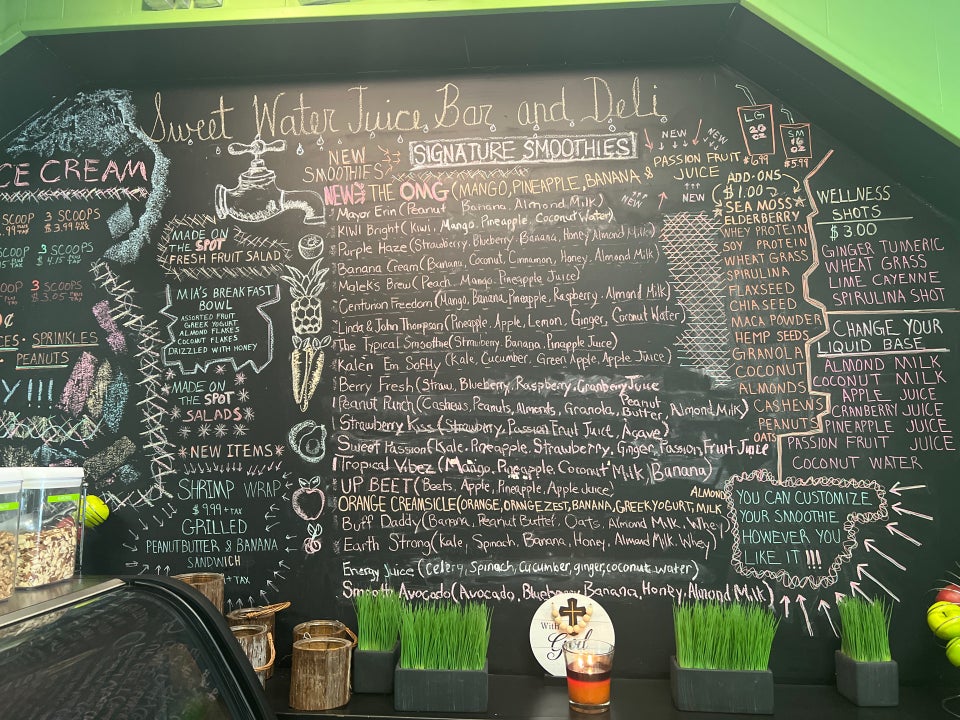 Sweet Water Juice Bar and Deli
CE CREAM
SCOOP 3 SCOOPS
$3.99
SCOOP 3 SCOOPS
$4.15
3 SCOOPS
$3.05
SPRINKLES
PEANUTS
Y!!!
MADE ON
THE SPOT
FRESH FRUIT SALAD
MIA'S BREAKFAST
BOWL
ASSORTED FRUIT
GREEK YOGURT
ALMOND FLAKES
COCONUT FLAKES
DRIZZLED WITH HONEY
MADE ON
THE SPOT
SALADS
*NEW ITEMS*
SHRIMP WRAP
$9.99 + TAX
GRILLED
PEANUTBUTTER & BANANA
SANDWICH
+ TAX
NEW
SMOOTHIES
SIGNATURE SMOOTHIES
NEW THE OMG (MANGO, PINEAPPLE, BANANA &
NEW NEW
PASSION FRUIT
JUICE
NEW NEW
Mayor Erin (Peanut Banana, Almond, Milk)
KIWI Bright (Kiwi, Mango, Pineapple, Coconut Water)
Purple Haze (Strawberry, Blueberry, Banana, Honey, Almond Milk)
Banana Cream (Banana, Coconut, Cinnamon, Honey, Almond Milk)
Malek's Brew (Peach, Mango, Pineapple Juice)
Centurion Freedom (Mango, Banana, Pineapple, Raspberry, Almond Milk)
Linda & John Thompson (Pineapple, Apple, Lemon, Ginger, Coconut Water)
The Typical Smoothie (Strawberry, Banana, Pineapple Juice)
Kalēn Em Softly (Kale, Cucumber, Green Apple, Apple Juice)
Berry Fresh (Straw, Blueberry, Raspberry, Cranberry Juice
Peanut Punch (Cashews, Peanuts, Almonds, Granola, Peanut Butter, Almond Milk)
Strawberry Kiss (Strawberry, Passion Fruit Juice, Agave)
Sweet Passion (Kale, Pineapple, Strawberry, Ginger, Passion Fruit Juice
Tropical Vibez (Mango, Pineapple, Coconut Milk, Banana)
UP BEET (Beets, Apple, Pineapple, Apple Juice)
ORANGE CREAMSICLE (ORANGE, ORANGE ZEST, BANANA, GREEK YOGURT, ALMOND MILK
Buff Daddy (Banana, Peanut Butter, Oats, Almond Milk, Whey)
Earth Strong (Kale, Spinach, Banana, Honey, Almond Milk, Whey)
Energy Juice (Celery, Spinach, Cucumber, ginger, coconut water)
Smooth Avocado (Avocado, Blueberry, Banana, Honey, Almond Milk)
LG
20
OZ
$6.99
SM
16
OZ
$5.99
ADD-ONS
$1.00
SEA MOSS
ELDERBERRY
WHEY PROTEIN
SOY PROTEIN
WHEAT GRASS
SPIRULINA
FLAXSEED
CHIA SEED
MACA POWDER
HEMP SEEDS
GRANOLA
COCONUT
ALMONDS
CASHEWS
PEANUTS
OATS
WELLNESS
SHOTS
$3.00
GINGER TUMERIC
WHEAT GRASS
LIME CAYENNE
SPIRULINA SHOT
CHANGE YOUR
LIQUID BASE
ALMOND MILK
COCONUT MILK
APPLE JUICE
CRANBERRY JUICE
PINEAPPLE JUICE
PASSION FRUIT JUICE
COCONUT WATER
YOU CAN CUSTOMIZE
YOUR SMOOTHIE
HOWEVER YOU
LIKE IT !!!
With
God